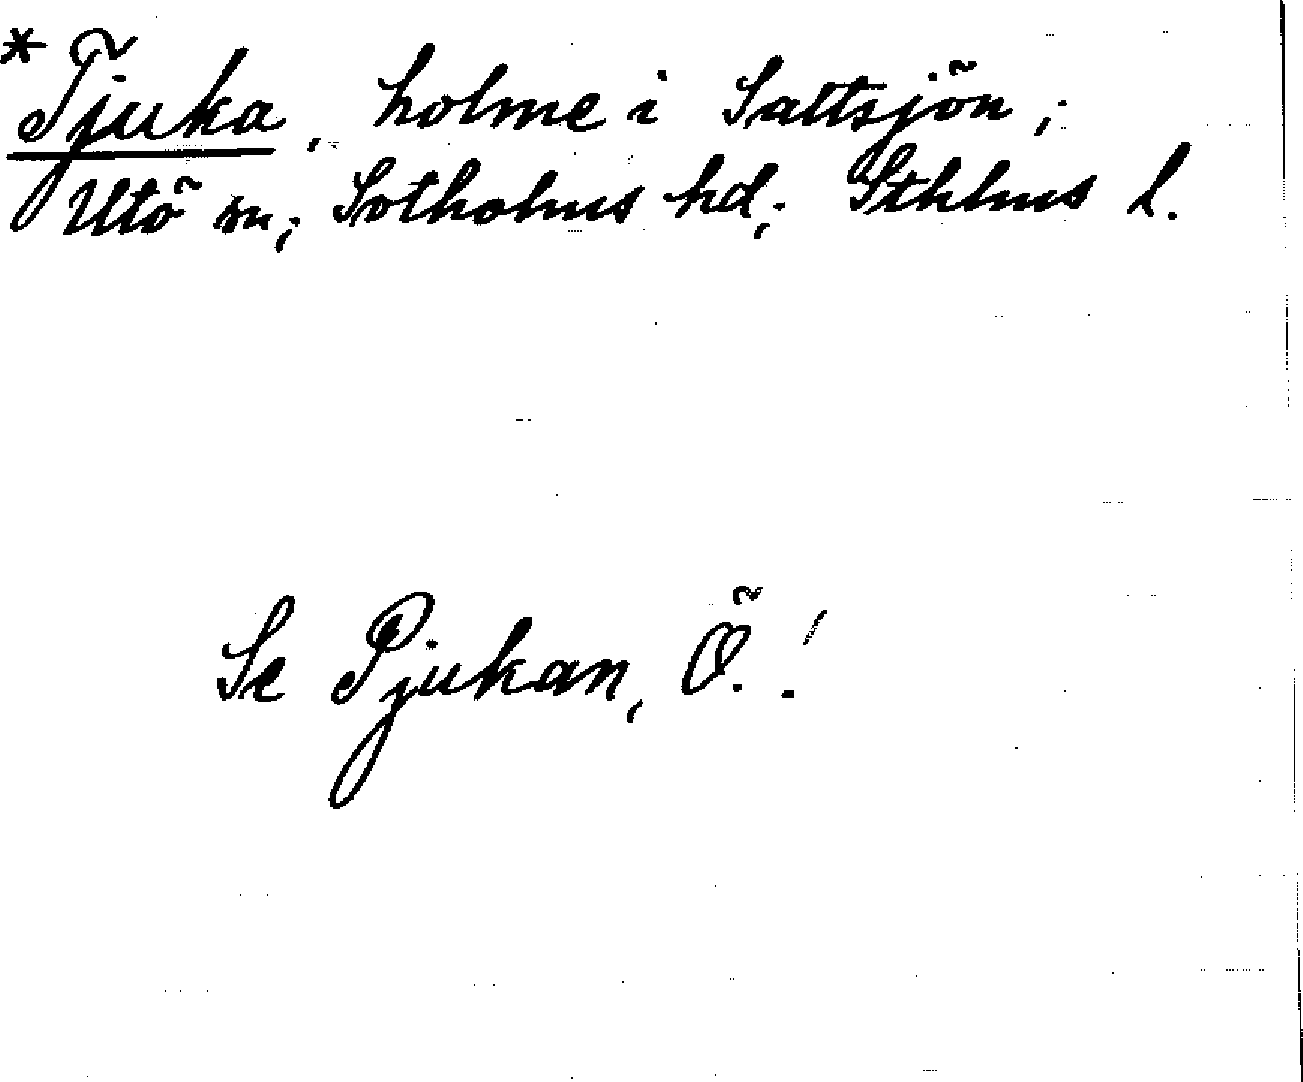 *Tjuka, holme i Saltsjön;
Utö sn; Sotholms hd; Sthlms l.
Se Pjukan, Ö.!